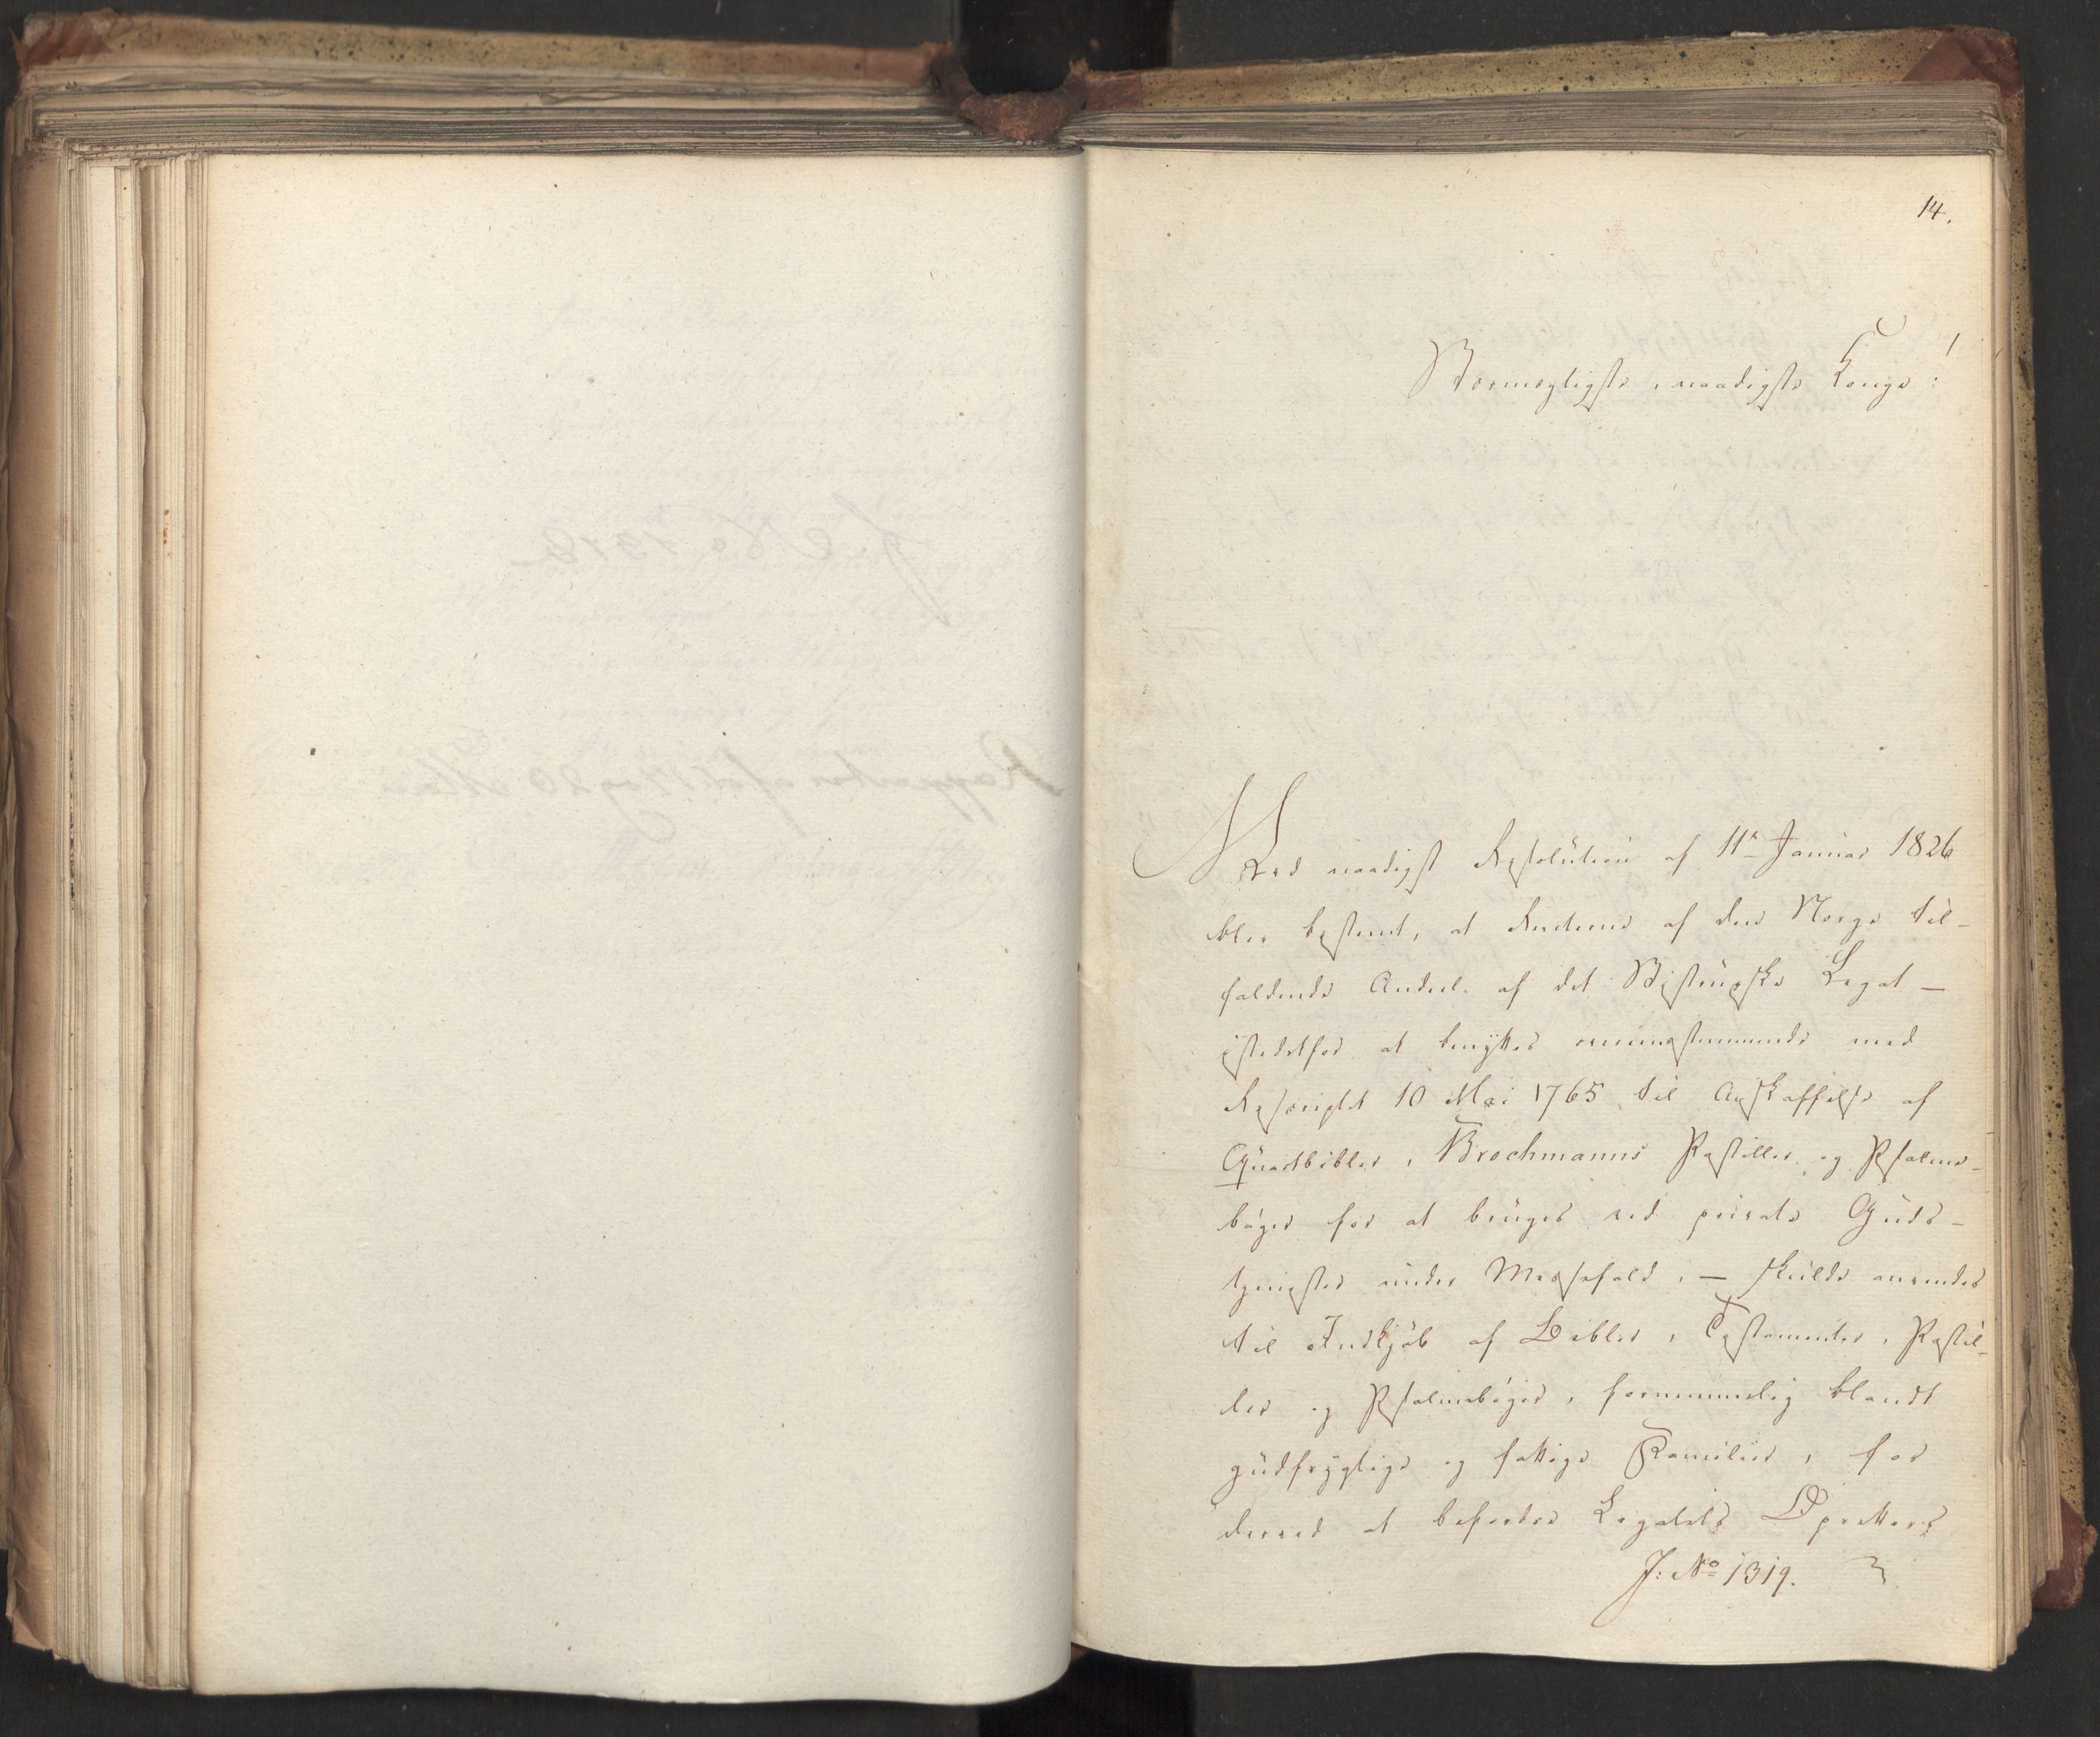 14.
Stormægtigste, naadigste Konge!
Ved naadigst Resolution af 11te Januar 1826
blev bestemt, at Renterne af den Norge til-
faldende Andeel af det Bistrupske Legat —
istedetfor at benyttes overensstemmende med
Rescript 10 Mai 1765 til Anskaffelse af
Qvartbibler, Brochmanns Postiller og Psalme-
bøger for at bruges ved private Guds-
tjenester under Messefald, — skulde anvendes
til Indkjøb af Bibler, Testamenter, Postil-
ler og Psalmebøger, fornemmelig blandt
gudfrygtige og fattige Familier, for
derved at befordre Legatets Opretters
J: No 1319.